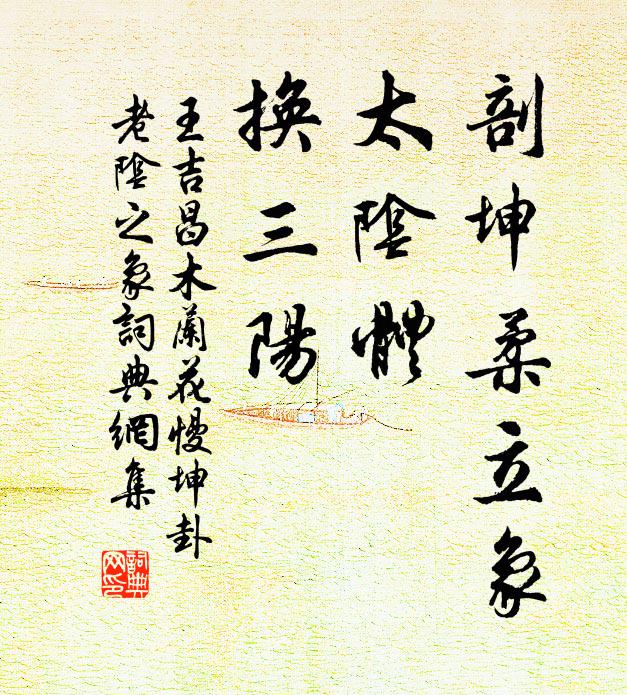 剖坤柔立象
太陰體
換三陽
王吉昌木蘭花慢坤卦
老陰之象詞典網集
詞典
网印